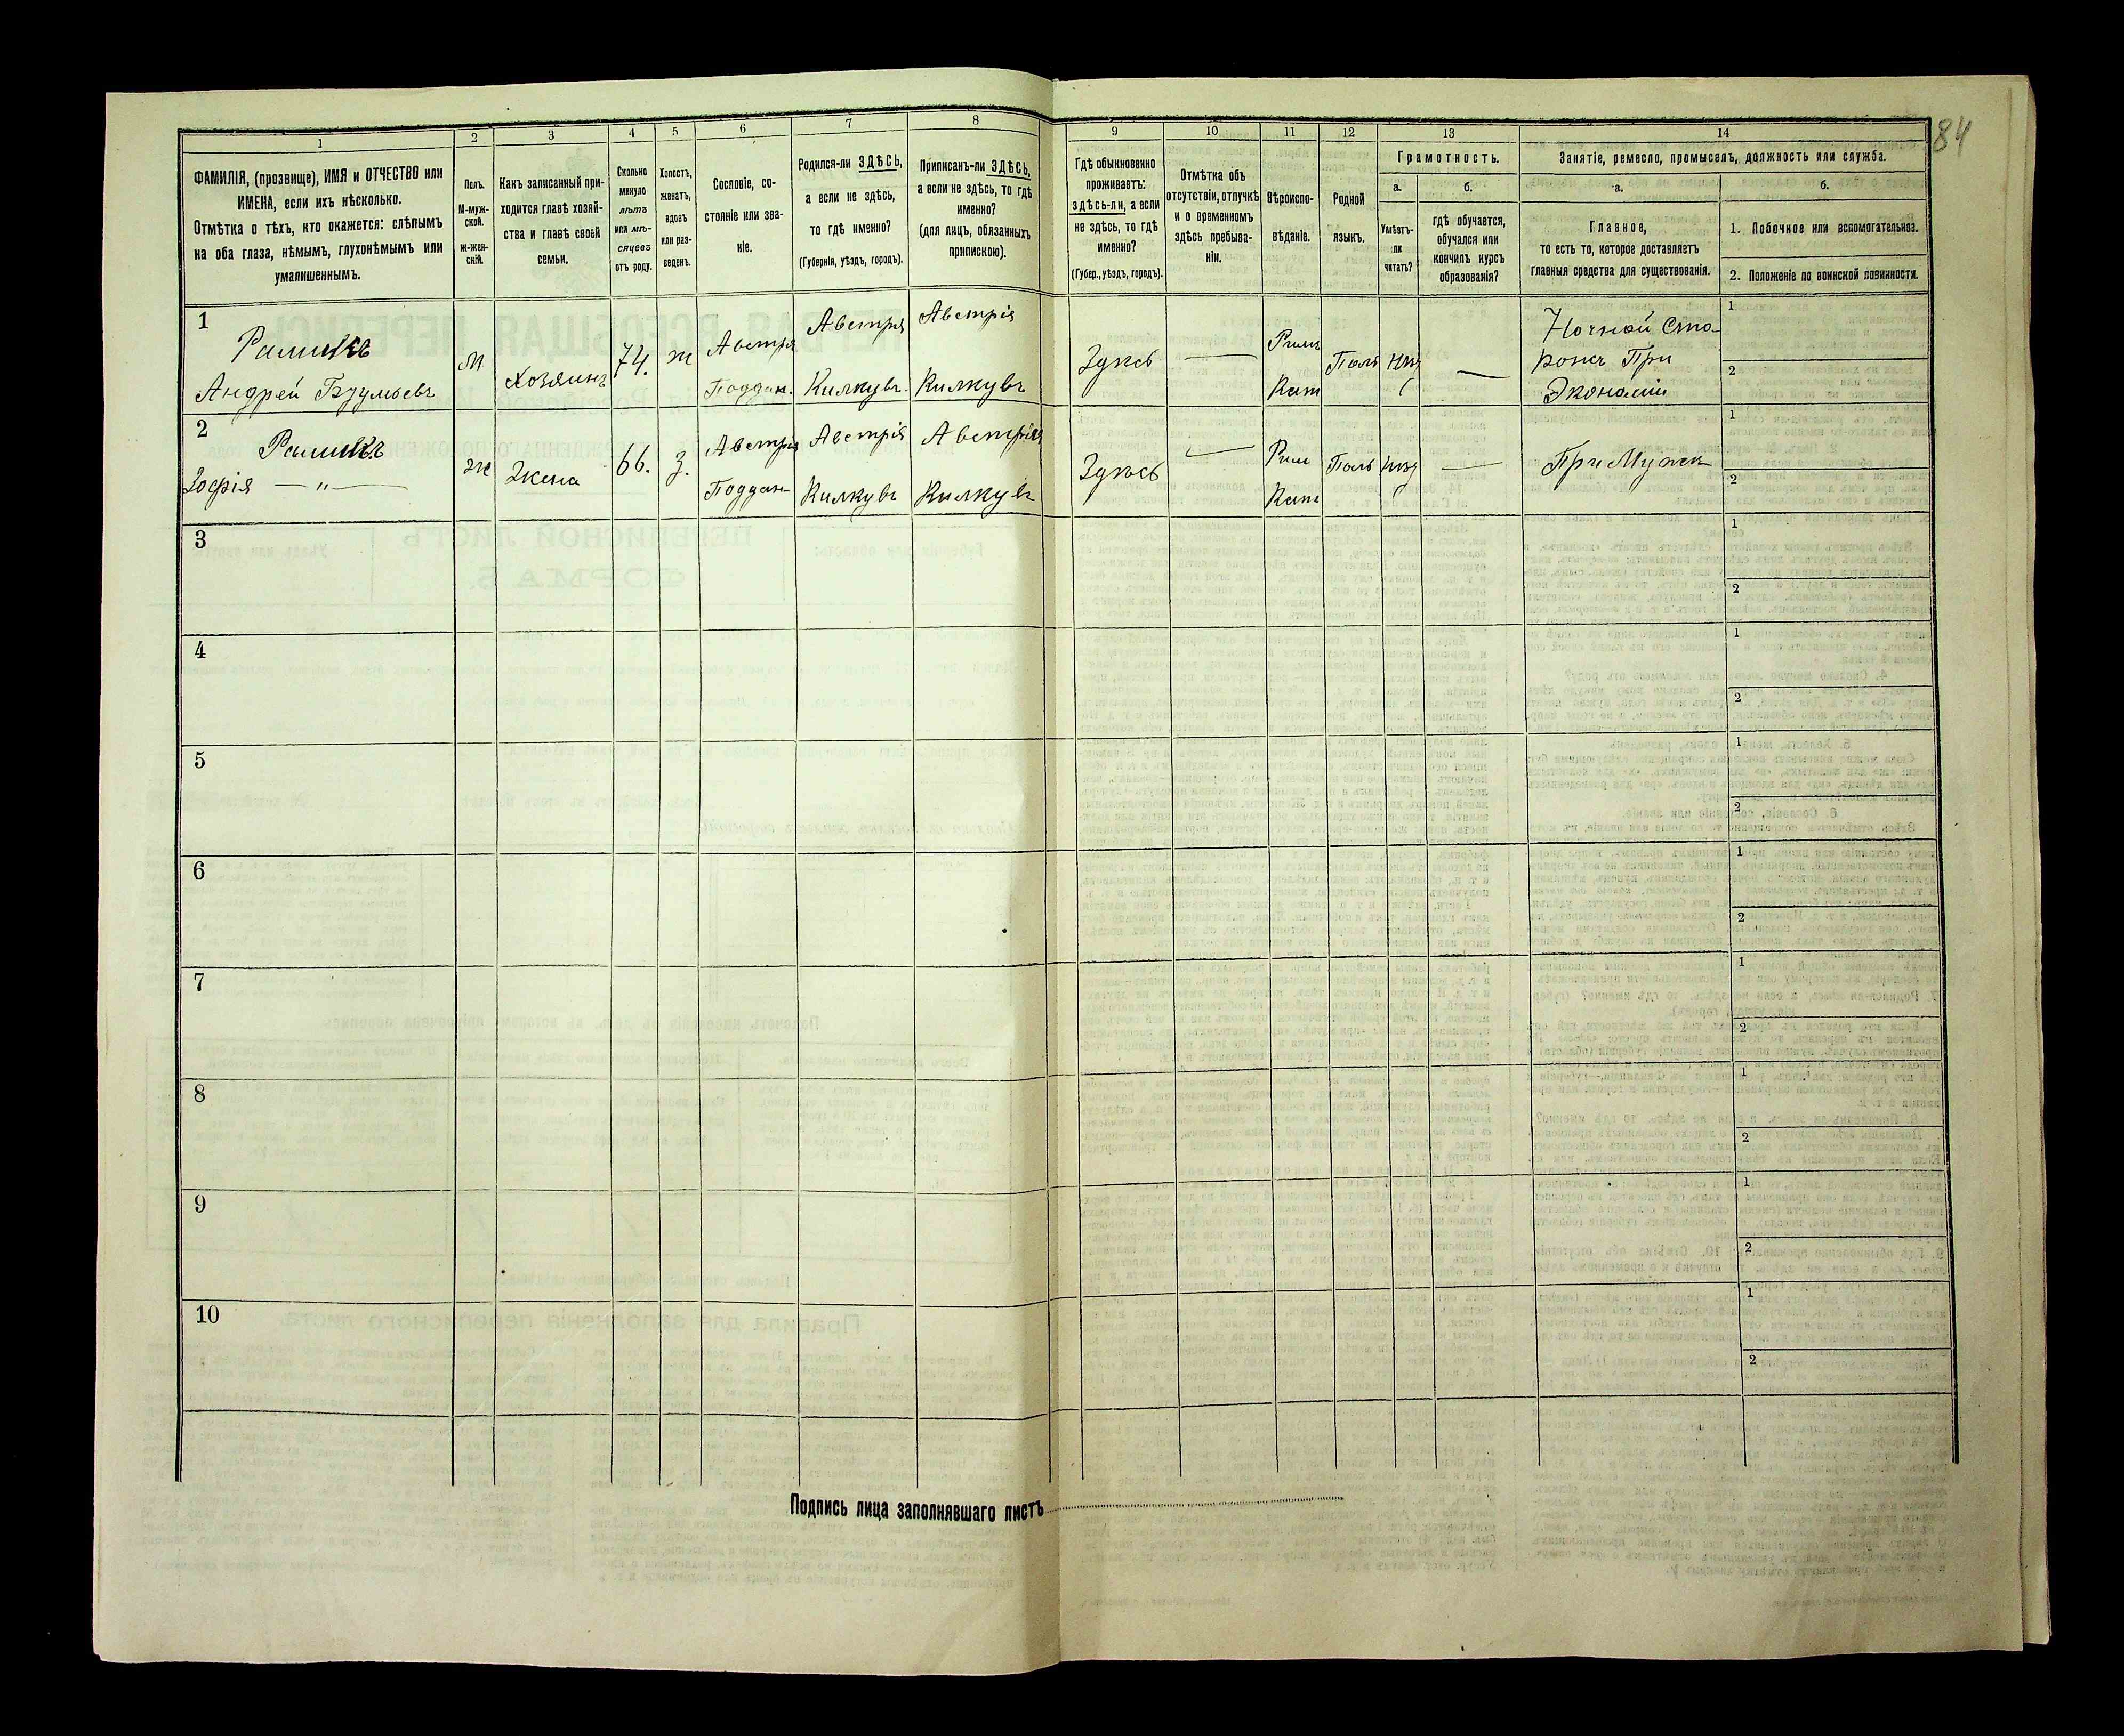 84
1 2 3 4 5 6 7 8 9 10 11 12 13 14
ФАМИЛІЯ, (прозвище), ИМЯ и ОТЧЕСТВО или
ИМЕНА, если ихъ нѣсколько.
Отмѣтка о тѣхъ, кто окажется: слѣпымъ
на оба глаза, нѣмымъ, глухонѣмымъ или
умалишеннымъ.
Полъ.
М-муж-
ской.
ж-жен-
скій.
Какъ записанный при-
ходится главѣ хозяй-
ства и главѣ своей
семьи.
Сколько
минуло
лѣтъ
или мѣ-
сяцевъ
отъ роду.
Холостъ,
женатъ,
вдовъ
или раз-
веденъ.
Сословіе, со-
стояніе или зва-
ніе.
Родился-ли ЗДѢСЬ,
а если не здѣсь,
то гдѣ именно?
(Губернія, уѣздъ, городъ).
Приписанъ-ли ЗДѢСЬ,
а если не здѣсь, то гдѣ
именно?
(для лицъ, обязанныхъ
припискою).
Гдѣ обыкновенно
проживаетъ:
здѣсь-ли, а если
не здѣсь, то гдѣ
именно?
(Губер., уѣздъ, городъ).
Отмѣтка объ
отсутствіи, отлучкѣ
и о временномъ
здѣсь пребыва-
ніи.
Вѣроиспо-
вѣданіе.
Родной
языкъ.
Грамотность.
а.
Умѣетъ-
ли
читать?
б.
гдѣ обучается,
обучался или
кончилъ курсъ
образованія?
Занятіе, ремесло, промыселъ, должность или служба.
а.
Главное,
то есть то, которое доставляетъ
главныя средства для существованія.
б.
1. Побочное или вспомогательное.
2. Положеніе по воинской повинности.
1
Андрей
м
Хозяинъ
74.
Австрія
Поддан.
Австрія
Килкувъ
Австрія
Килкувъ
Здѣсь
—
Римъ
Кат
Поль
—
Ночной Сто-
рожъ При
Экономіи
1
2
2
Зофія — " —
ж
Жена
66.
З.
Австрія
Поддан
Австрія
Килкувъ
Австрія
Килкувъ
Здѣсь
—
Рим
Кат
Поль
—
При Мужѣ
1
2
3
1
2
4
1
2
5
1
2
6
1
2
7
1
2
8
1
2
9
1
2
10
1
2
Подпись лица заполнявшаго листъ